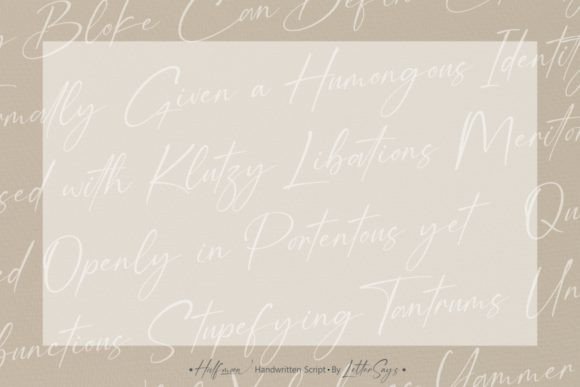 Bloke Can Defin
mally Given a Humongous Identity
sed with Klutzy Libations Meritor
ed Openly in Portentous yet Qu
bunctious Stupefying Tantrums Un
Yammer
• Halfmoon Handwritten Script • By LetterSays •